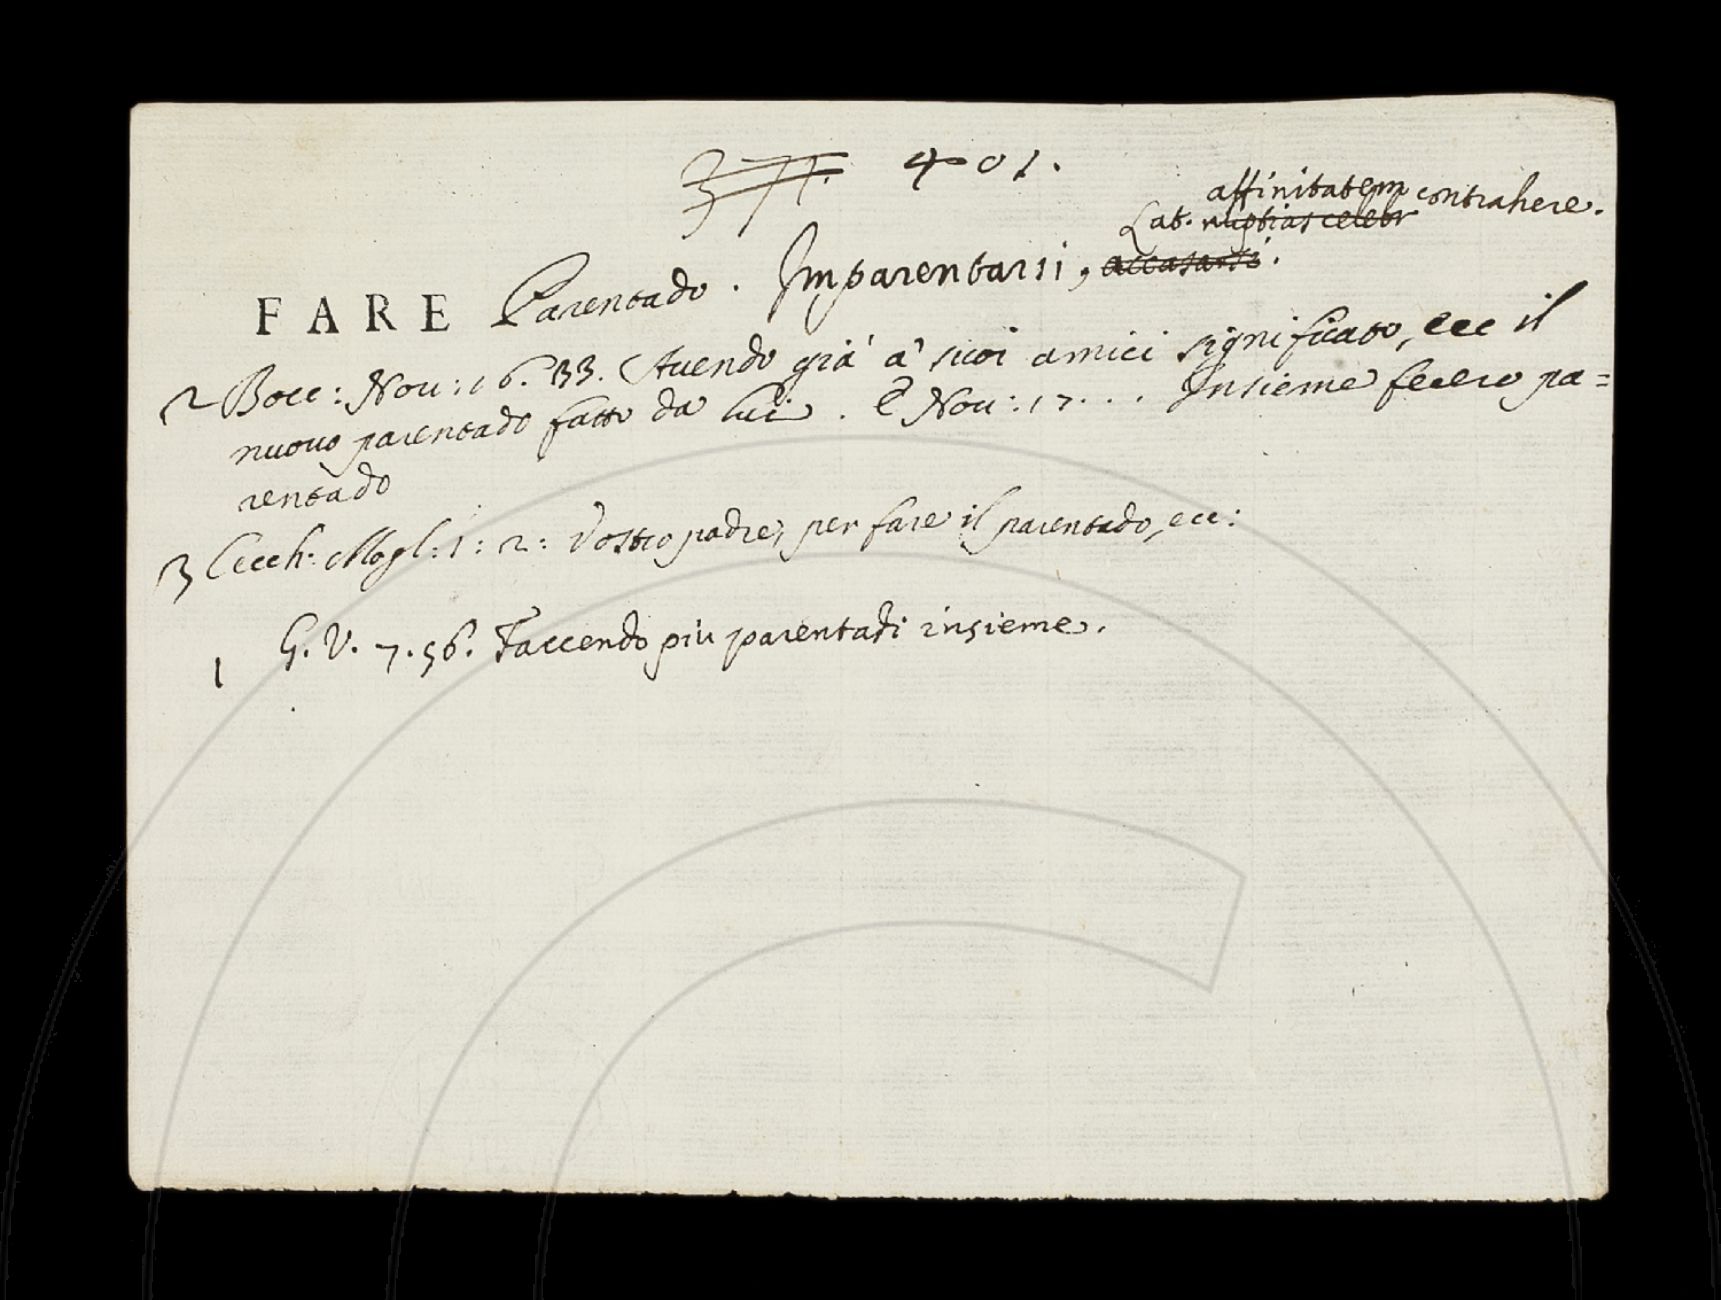 377. 401.
affinitatem contrahere.
Lat. nuptias celebr
FARE Parentado. Imparentarsi, accasarsi.
2 Bocc: Nov: 16. 33. Avendo già à suoi amici significato, ecc il
nuovo parentado fatto da lui. E Nov: 17... Insieme fecero pa=
rentado
3 Cecch: Mogl: 1: 2: Vostro padre, per fare il parentado, ecc:
1 G. V. 7. 56. Faccendo piu parentadi insieme.